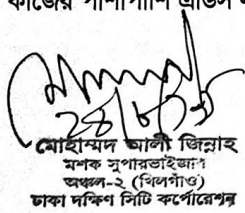 কাজের পাশাপাশি
মোহাম্মদ আলী জিন্নাহ
মশক সুপারভাইজার
অঞ্চল-২ (খিলগাঁও)
ঢাকা দক্ষিণ সিটি কর্পোরেশন